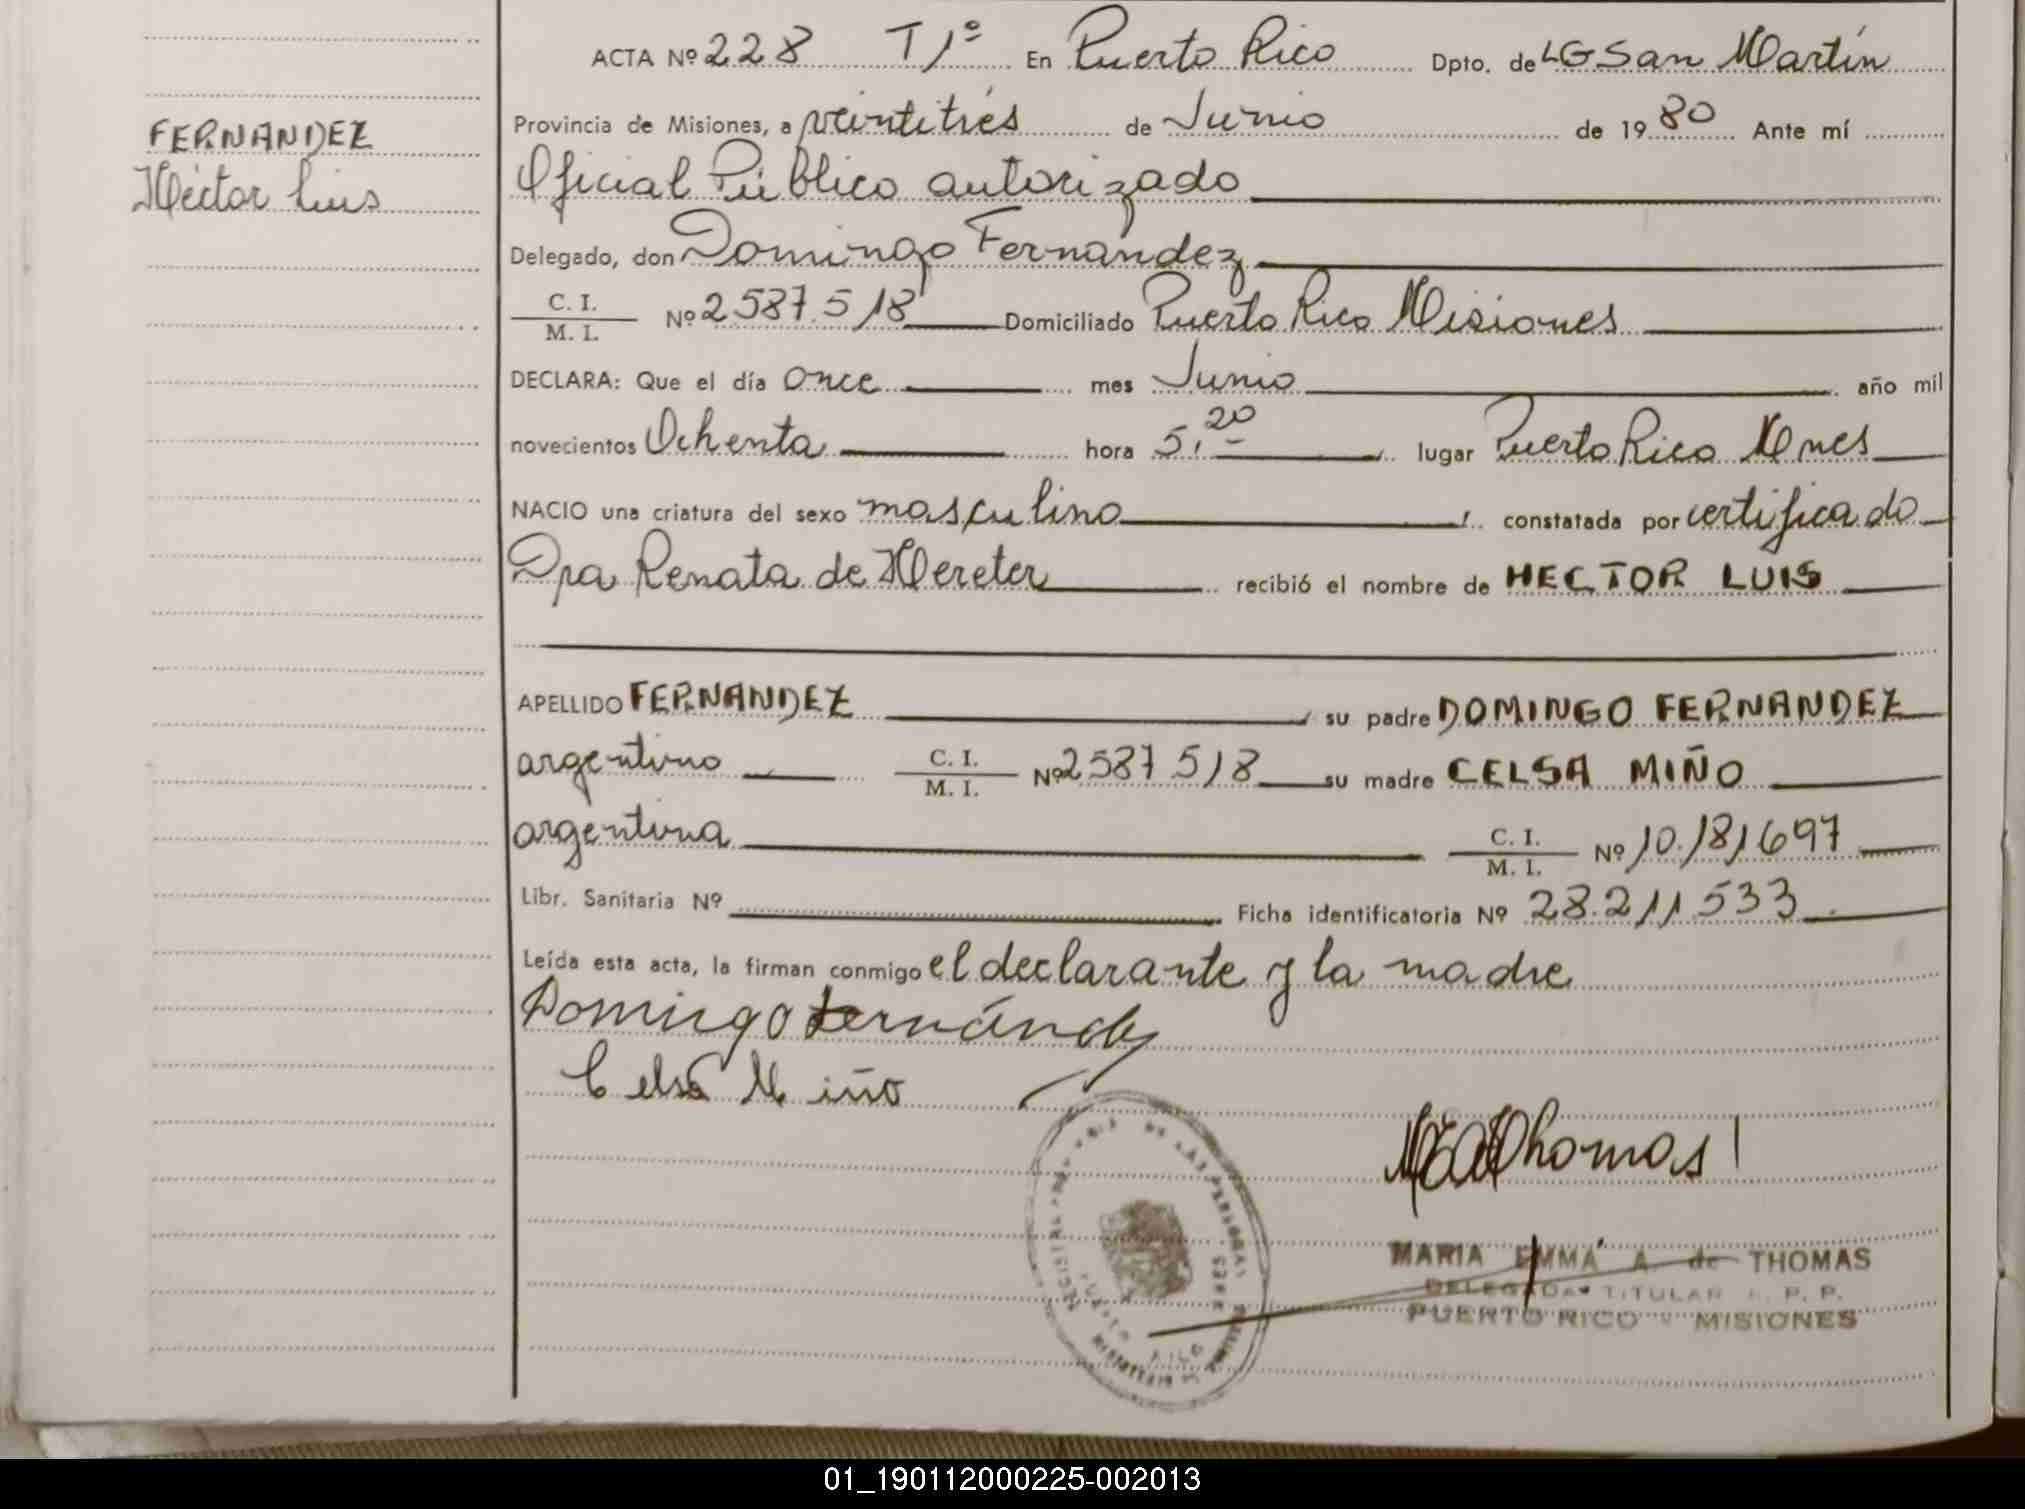 FERNANDEZ
Héctor Luis
ACTA Nº 228 T1º En Puerto Rico Dpto. de LG San Martín
Provincia de Misiones, a veintitrés de Junio de 1980 Ante mí
Oficial Público autorizado
Delegado, don Domingo Fernández
C. I.
M. I.
Nº 2587.518 Domiciliado Puerto Rico Misiones
DECLARA: Que el día once mes Junio año mil
novecientos Ochenta hora 5,20 lugar Puerto Rico Mnes
NACIO una criatura del sexo masculino, constatada por certificado
Dra Renata de Mereter recibió el nombre de HECTOR LUIS
APELLIDO FERNANDEZ, su padre DOMINGO FERNANDEZ
argentino C. I. M. I. Nº 2587518 su madre CELSA MIÑO
argentina C. I. M. I. Nº 10.181697
Libr. Sanitaria Nº Ficha identificatoria Nº 28.211.533
Leída esta acta, la firman conmigo el declarante y la madre
Domingo Fernández
Celsa Miño
Thomas
MARIA EMMA A. de THOMAS
DELEGADA TITULAR R. P. P.
PUERTO RICO - MISIONES
DE LAS PERSONAS
PUERTO RICO
01_190112000225-002013